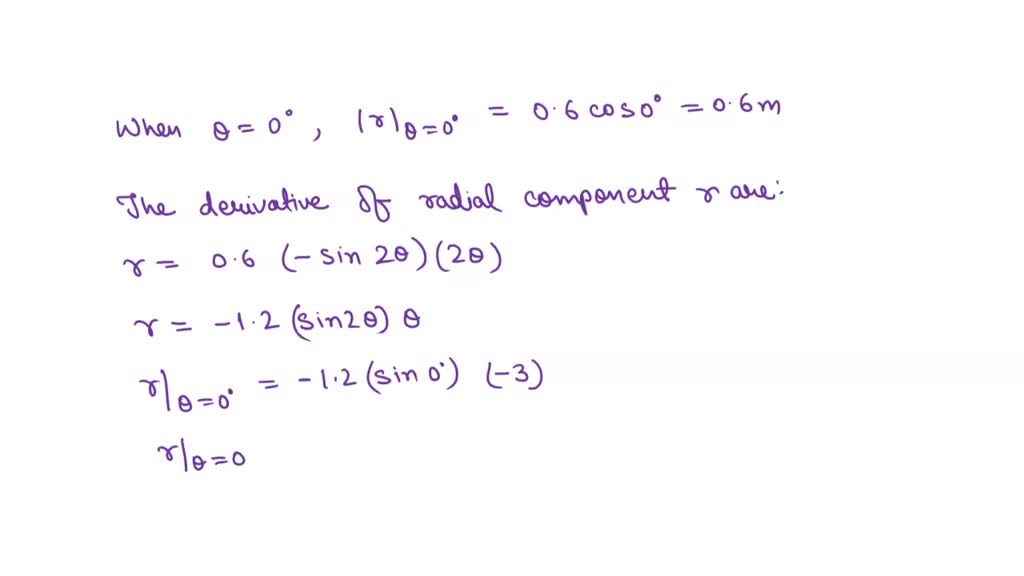 When θ = 0°, |r|θ=0° = 0.6 cos 0° = 0.6m
The derivative of radial component r are:
r = 0.6 (-sin 2θ)(2θ)
r = -1.2 (sin2θ) θ
r|θ=0° = -1.2 (sin 0°) (-3)
r|θ=0